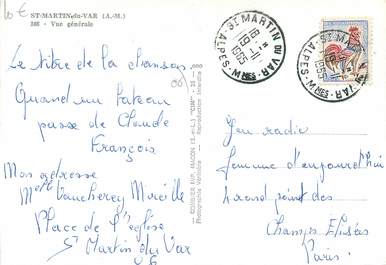 10 €
ST-MARTIN-du-VAR (A.-M.)
Vue générale
Le titre de la chanson
Quand un bateau
passe de Claude
François
Mon adresse
Vaucherey Mireille
Place de l'église
St Martin du Var
06
COMBIER IMP. MACON (S.-&-L.) "CIM"
Photographie Véritable - Reproduction interdite
ST MARTIN DU VAR
ALPES-MMES
18-11
1965
ST MARTIN DU VAR
ALPES-MMES
Jeu radio
femme d'aujourd'hui
rond point des
Champs Elisées
Paris.